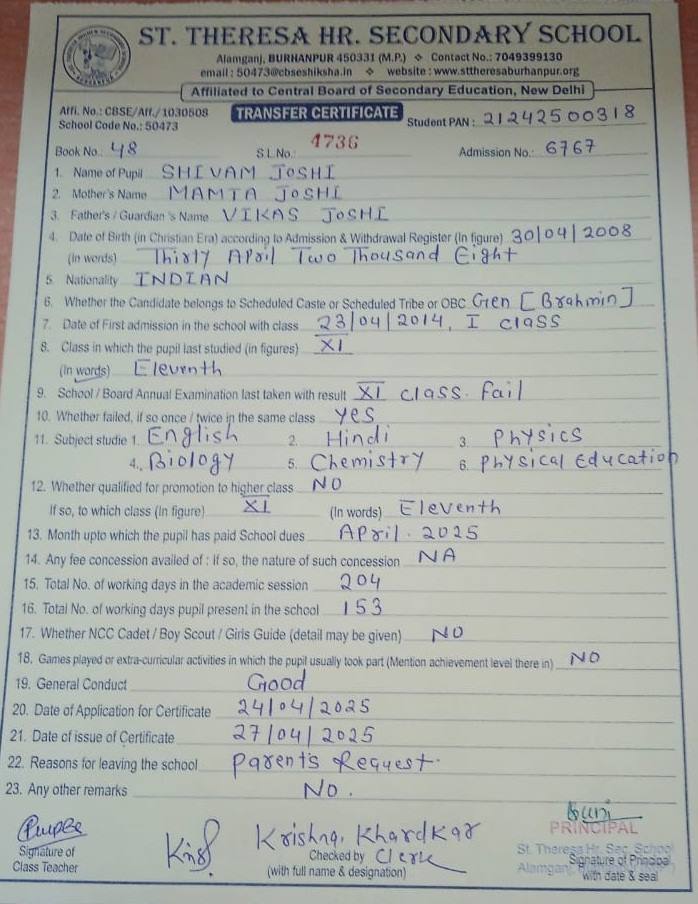 ST. THERESA HR. SECONDARY SCHOOL
Alamganj, BURHANPUR 450331 (M.P.) ❖ Contact No.: 7049399130
email : 50473@cbseshiksha.in ❖ website : www.sttheresaburhanpur.org
Affiliated to Central Board of Secondary Education, New Delhi
Affi. No.: CBSE/Aff./1030508 TRANSFER CERTIFICATE Student PAN : 21242500318
School Code No.: 50473
Book No.: 48 S.L.No.: 4736 Admission No.: 6767
1. Name of Pupil SHIVAM JOSHI
2. Mother's Name MAMTA JOSHI
3. Father's / Guardian 's Name VIKAS JOSHI
4. Date of Birth (in Christian Era) according to Admission & Withdrawal Register (In figure) 30/04/2008
(In words) Thirty April Two Thousand Eight
5. Nationality INDIAN
6. Whether the Candidate belongs to Scheduled Caste or Scheduled Tribe or OBC Gen [Brahmin]
7. Date of First admission in the school with class 23/04/2014, I class
8. Class in which the pupil last studied (in figures) XI
(In words) Eleventh
9. School / Board Annual Examination last taken with result XI class. Fail
10. Whether failed, if so once / twice in the same class yes
11. Subject studie 1. English 2. Hindi 3. Physics
4., Biology 5. Chemistry 6. Physical Education
12. Whether qualified for promotion to higher class NO
If so, to which class (In figure) XI (In words) Eleventh
13. Month upto which the pupil has paid School dues April. 2025
14. Any fee concession availed of : If so, the nature of such concession NA
15. Total No. of working days in the academic session 204
16. Total No. of working days pupil present in the school 153
17. Whether NCC Cadet / Boy Scout / Girls Guide (detail may be given) NO
18. Games played or extra-curricular activities in which the pupil usually took part (Mention achievement level there in) NO
19. General Conduct Good
20. Date of Application for Certificate 24/04/2025
21. Date of issue of Certificate 27/04/2025
22. Reasons for leaving the school Parent's Request.
23. Any other remarks No.
Krishna, Khardkar
PRINCIPAL
Signature of Checked by Clerk St. Theresa Hr. Sec. School
Class Teacher (with full name & designation) Alamganj, Signature of Principal
with date & seal